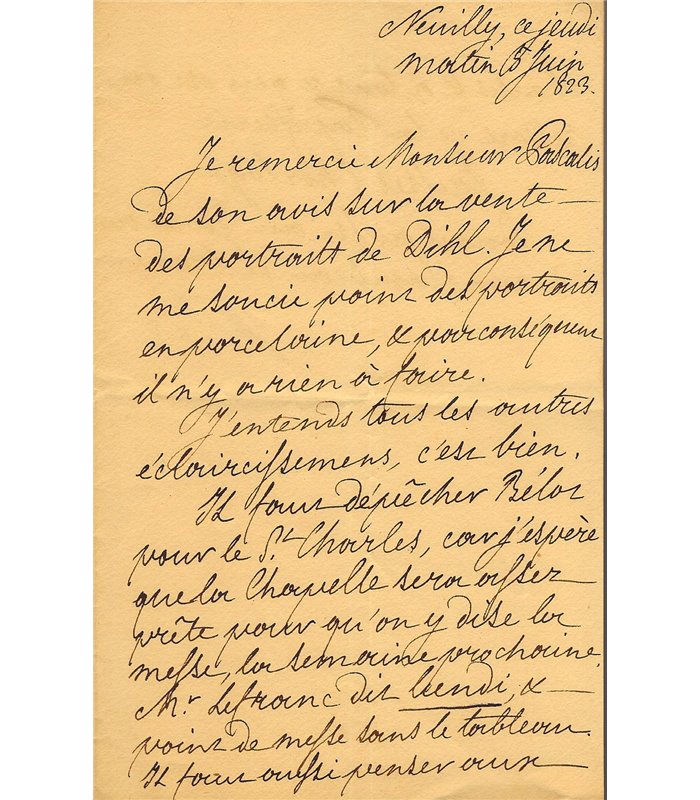 Neuilly, ce jeudi
matin 5 Juin
1823.
Je remercie Monsieur Pascalis
de son avis sur la vente —
des portraitt de Dihl. Je ne
me soucie point des portraits
en porcelaine, & par conséquent
il n'y a rien à faire.
J'entends tous les autres
éclaircissemens, c'est bien.
Il faut dépêcher Bélot
pour le St. Charles, car j'espère
que la Chapelle sera assez
prête pour qu'on y dise la
messe, la semaine prochaine.
Mr. Lefranc dit lundi, & —
point de messe sans le tableau.
Il faut aussi penser aux —